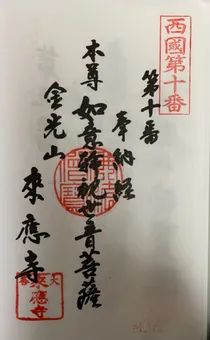 西國第十番
第十番
奉納経
本尊 如意輪観世音菩薩
金光山
來應寺